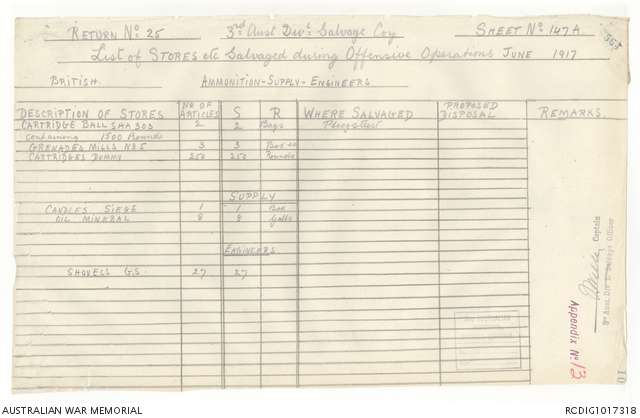 RETURN No. 25 3rd Aust Divl Salvage Coy SHEET No. 147A
List of STORES etc Salvaged during Offensive Operations JUNE 1917
BRITISH AMMUNITION-SUPPLY-ENGINEERS
DESCRIPTION OF STORES No OF ARTICLES S R WHERE SALVAGED PROPOSED DISPOSAL REMARKS.
CARTRIDGE BALL SAA 303 2 2 Bags Ploegsteert
containing 1500 Rounds
GRENADES MILLS No. 5 3 3 Boxes
CARTRIDGES DUMMY 250 250 Rounds
SUPPLY
CANDLES SIEGE 1 1 Box
OIL MINERAL 8 8 Galls
ENGINEERS
SHOVELS G.S. 27 27
Captain
3rd Aust. Div'l. Salvage Officer
Appendix No 13
10
AUSTRALIAN WAR MEMORIAL RCDIG1017318